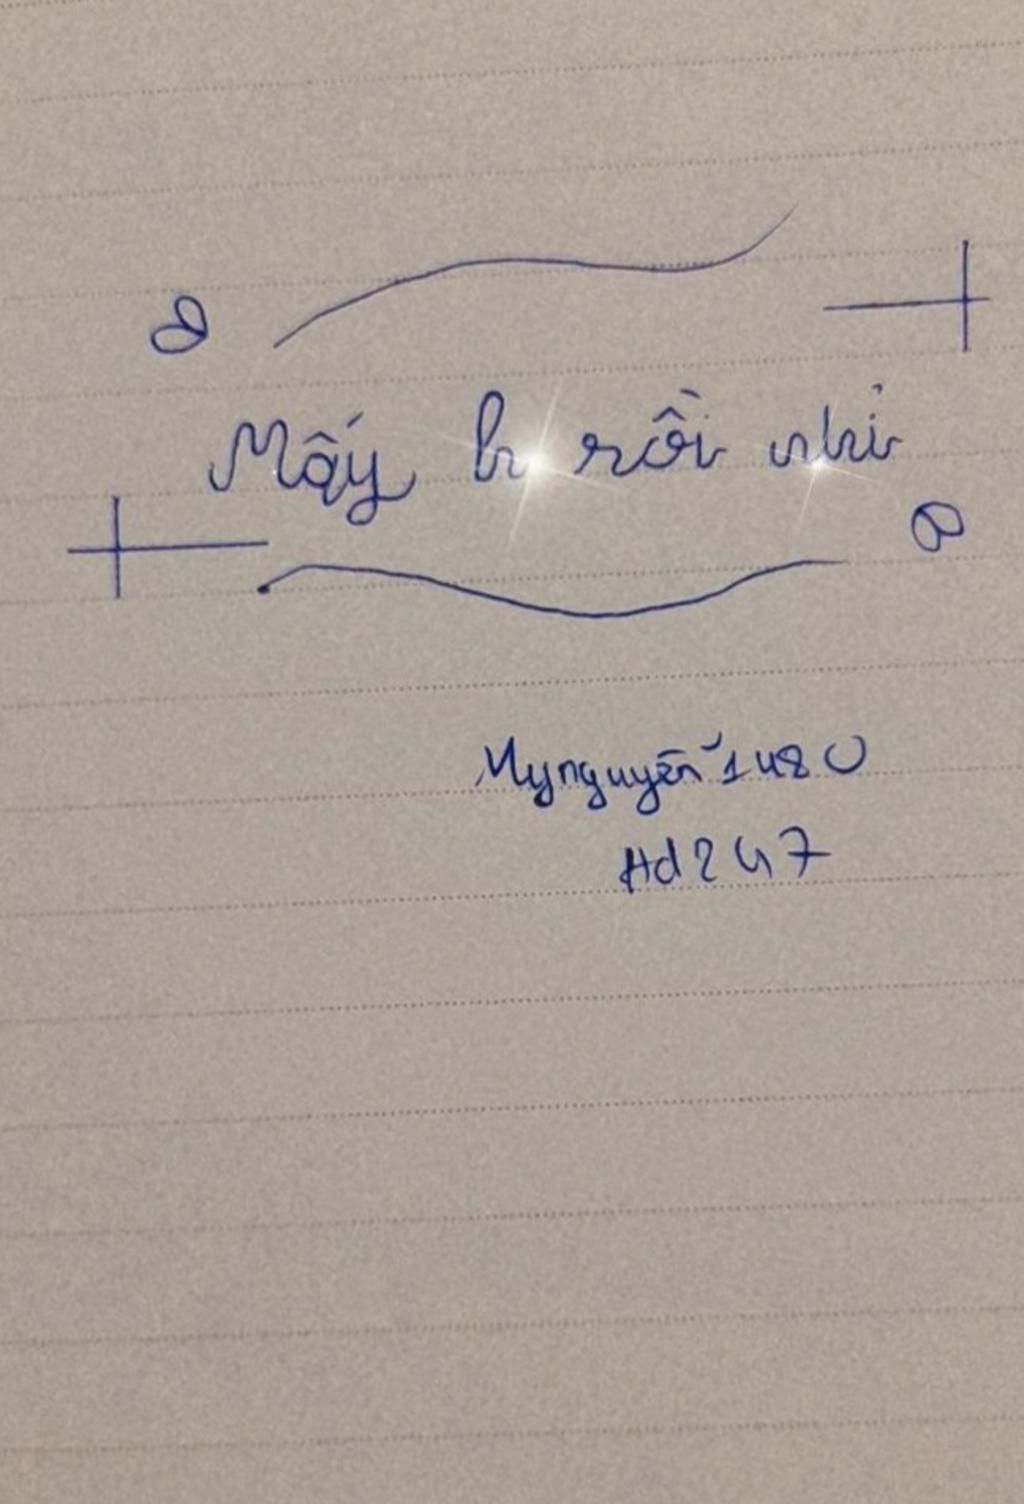 Mấy h rồi nhỉ
Mynguyễn1480
Hd247